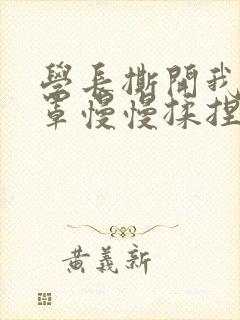 學長撕開我
罩慢慢揉捏
黃義新